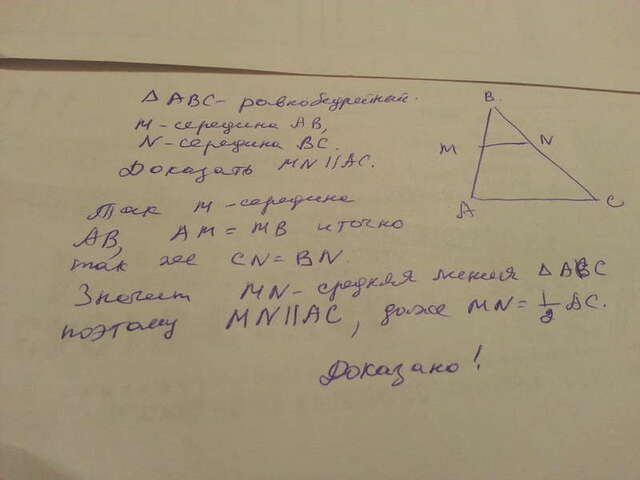 △ ABC - равнобедренный.
M - середина AB,
N - середина BC.
Доказать MN || AC.
B
M
N
A
C
Так M - середина
AB, AM = MB и точно
так же CN = BN.
Значит MN - средняя линия △ ABC
поэтому MN || AC, даже MN = 1/2 AC.
Доказано!